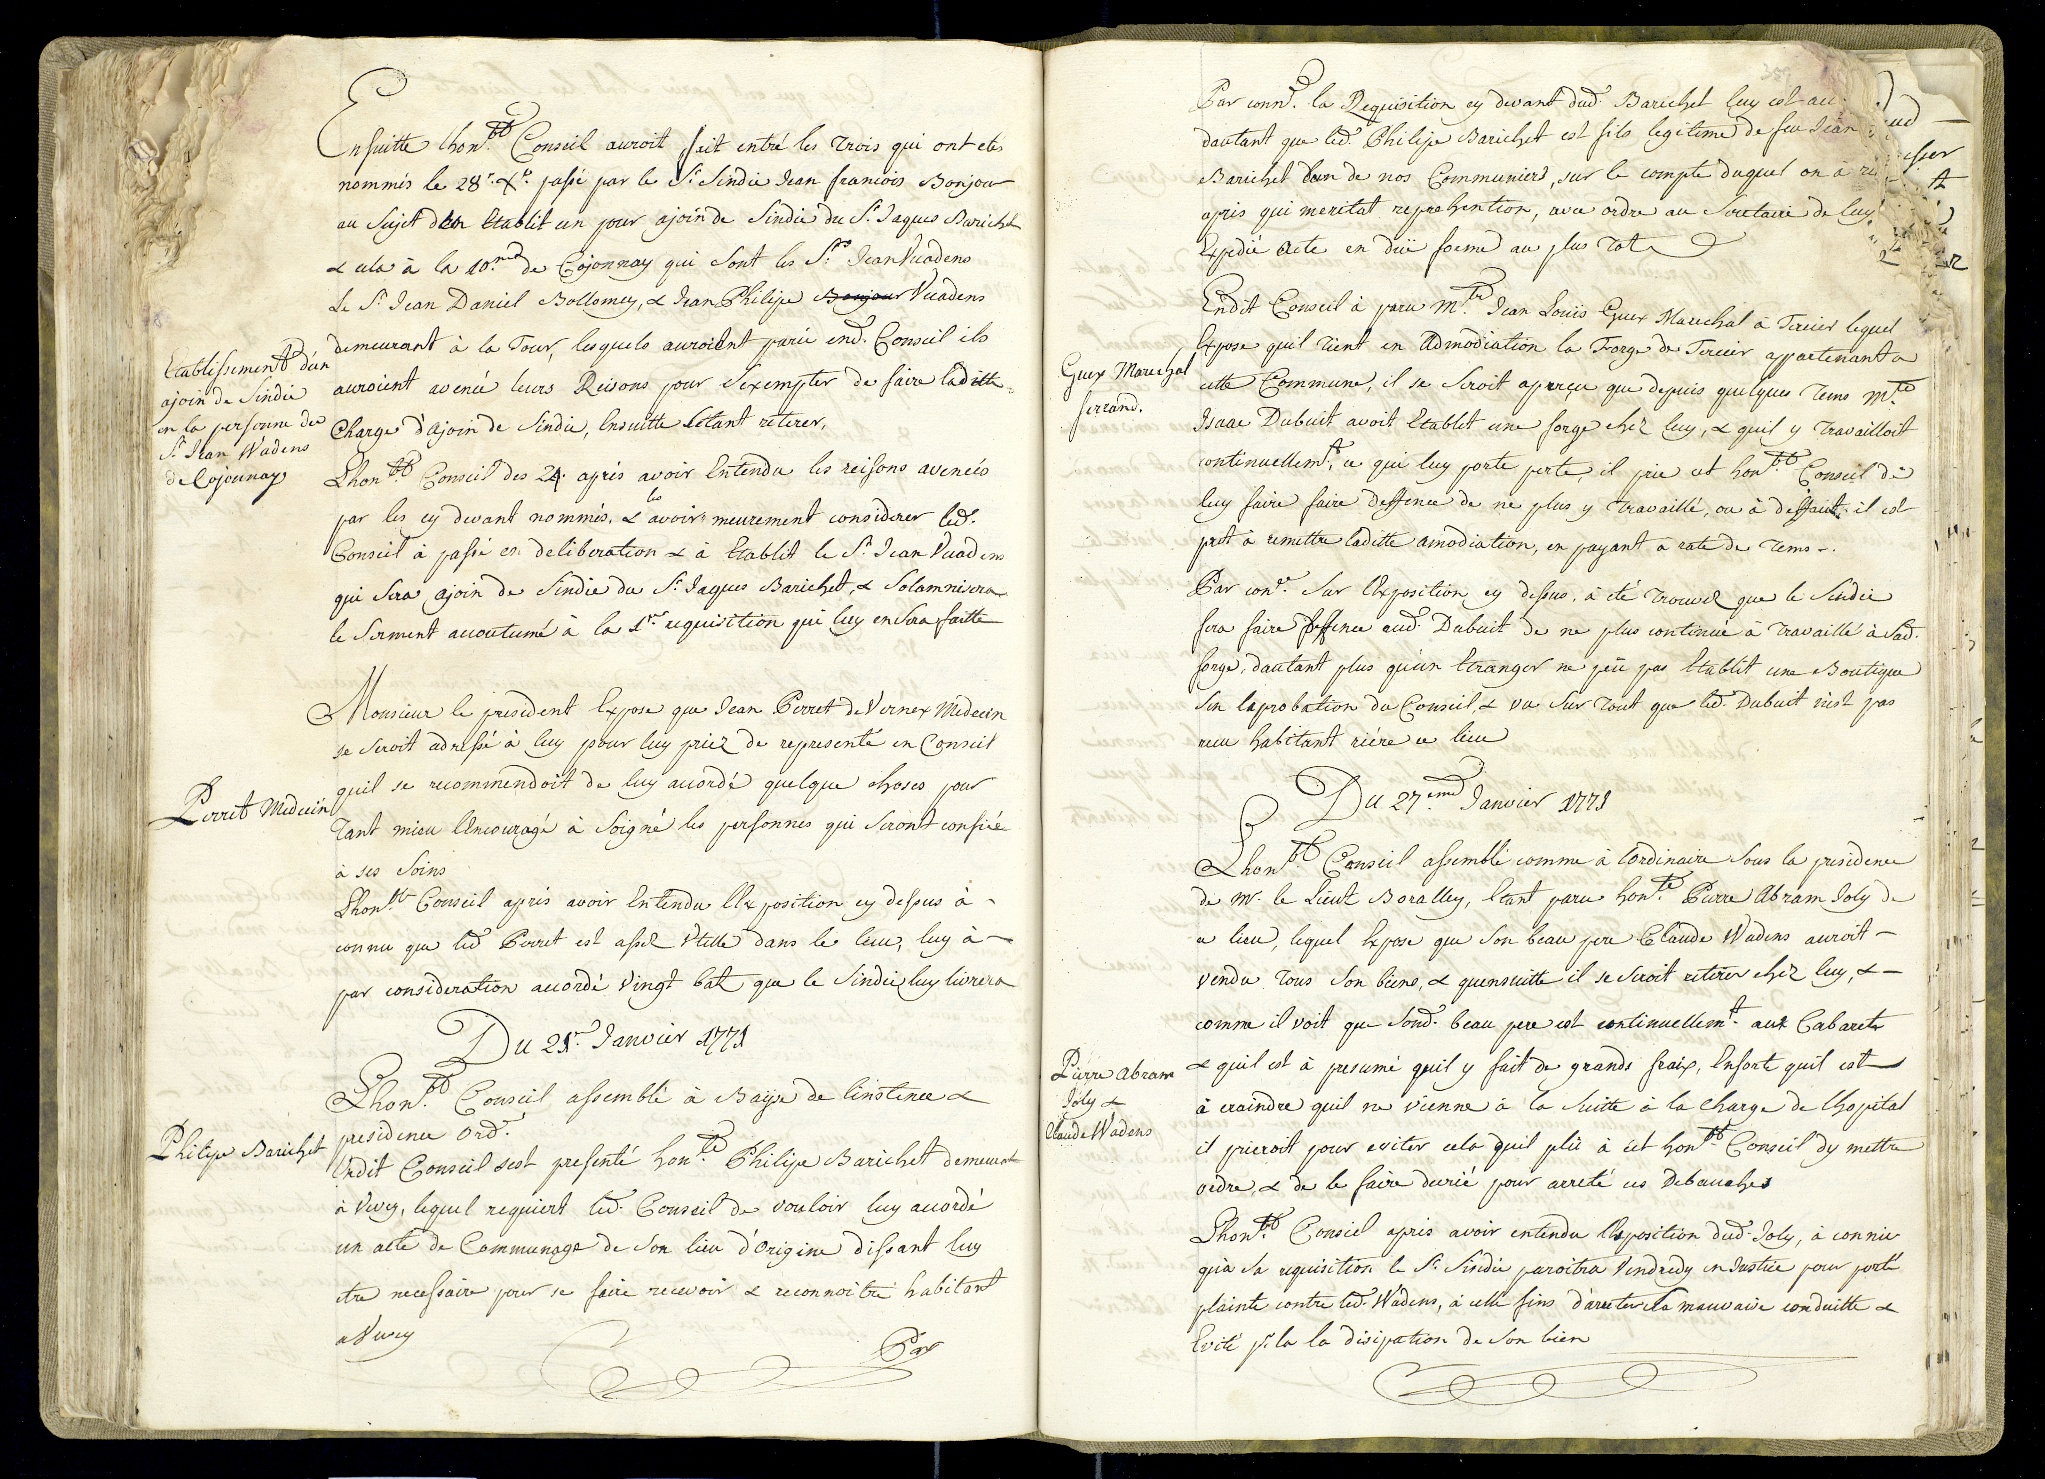 Ensuitte Lhon.ble Conseil auroit fait entré les trois qui ont etés
nommés le 28.e Xbr. passé par le Sr. Sindic Jean francois Bonjour
au Sujet d'en Etablit un pour ajoin de Sindic du Sr. Jaques Barichet
& cela à la 10.me de Cojonnay qui sont les Srs. Jean Vuadens
Le Sr. Jean Daniel Bollomey, & Jean Philipe Bonjour Vuadens
demeurant à la Tour, lesquels auroient parû end. Conseil ils
auroient avencé leurs Reisons pour s'exempter de faire laditte
Charge d'ajoin de Sindic, Ensuitte s'étant retirer,
Etablissement d'un
ajoin de Sindic
en la personne du
Sr. Jean Wadens
de Cojonnay
Lhon.ble Conseil des 24. aprés avoir Entendu les reisons avencés
par les cy devant nommés, & les avoir meurement considerer led.
Conseil à passé en deliberation & à Etablit le Sr. Jean Vuadens
qui sera ajoin de Sindic du Sr. Jaques Barichet, & Solamnisera
le Serment accoutumé à la 1.re requisition qui luy en Sera faitte
Monsieur le president Expose que Jean Perret de Vernex Médecin
se seroit adressé à luy pour luy priez de representé en Conseil
quil se recommendoit de luy accordé quelque choses pour
Tant mieu l'Encouragé à Soigné les personnes qui seront confiée
à ses Soins
Perret Médecin
Lhon.ble Conseil aprés avoir Entendu l'Exposition cy dessus à
connu que led. Perret est assez Utille dans le lieu, luy à
par consideration accordé vingt batz que le Sindic luy livrera
Du 21.e Janvier 1771
Lhon.ble Conseil assemblé à Baÿe de linstence &
presidence Ord.e
Philipe Barichet
Endit Conseil sest presenté hon.te Philipe Barichet demeurant
à Vevey, lequel requiert led. Conseil de vouloir luy accordé
un acte de Communage de Son lieu d'Origine dissant luy
etre necessaire pour se faire recevoir & reconnoitre habitant
a Vevey
Par
Par conn.ce la Requisition cy devant dud. Barichet luy est
dautant que led. Philipe Barichet est fils legitime de feu Jean
Barichet l'un de nos Communiers, sur le compte duquel on à
apris qui meritat reprehention, avec ordre au Secretaire de luy
Expedié Acte en düe forme au plus Tot
Endit Conseil à paru M.tre Jean Louis Guex Marechal à Tercier lequel
Expose quil Tient en Admodiation la Forge de Tercier appartenant a
cette Commune, il se seroit aperçu que depuis quelques Tems M.tre
Isaac Dubuit avoit Etablit une forge chez luy, & quil y Travailloit
continuellem.t, ce qui luy porte perte, il prie cet hon.ble Conseil de
luy faire faire deffence de ne plus y Travaillé, ou à deffaut il est
pret à remettre laditte amodiation, en payant à rate de Tems
Guex Marechal
ferrand.
Par con.ce Sur l'Exposition cy dessus, à été Trouvez que le Sindic
fera faire deffence aud. Dubuit de ne plus continué à Travaillé à Sad.
forge, dautant plus qu'un Etranger ne peu pas Etablit une Boutique
sen l'aprobation du Conseil, & vu Sur tout que led. Dubuit n'est pas
recu habitant riére ce lieu
Du 27.eme Janvier 1771
Lhon.ble Conseil assemblé comme à l'ordinaire Sous la presidence
de Mr. le Lieut Boralley, Etant paru hon.te Pierre Abram Joly de
ce lieu, lequel Expose que Son beau pere Claude Wadens auroit
vendu Tous Son biens, & quensuitte il se seroit retirer chez luy, &
comme il voit que Sond. beau pere est continuellem.t aux Cabarets
& quil est à presumé quil y fait de grands fraix, Ensorte quil est
à craindre quil ne vienne à la Suitte à la charge de Lhopital
il prieroit pour eviter cela quil plü à cet hon.ble Conseil dy mettre
ordre, & de le faire decrié pour arreté ces Debauches
Pierre Abram
Joly &
Claude Wadens
Lhon.ble Conseil apres avoir entendu l'Exposition dud. Joly, à connu
qu'à sa requisition le Sr. Sindic paroitra Vendredy en Justice pour porté
plainte contre led. Wadens, à celle fins d'arreter la mauvaise conduitte &
Evité pr. la la disipation de Son bien